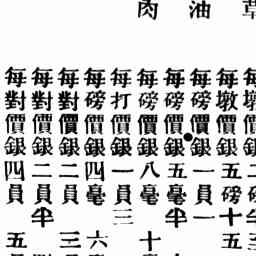 每墩價銀五磅十五
油 每磅價銀一員一
每磅價銀五毫半
肉 每磅價銀八毫 十
每打價銀一員三
每磅價銀四毫 六
每對價銀二員 三
每對價銀二員半
每對價銀四員 五